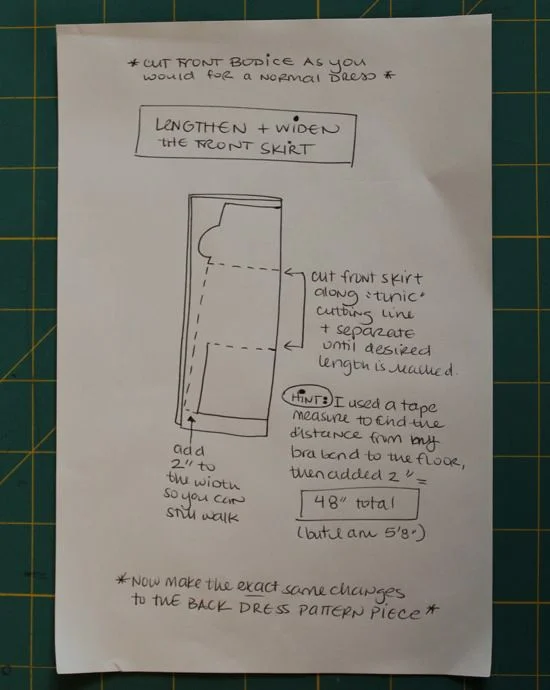 * CUT FRONT BODICE AS YOU
would for a NORMAL DRESS *
LENGTHEN + WIDEN
THE FRONT SKIRT
cut front skirt
along "tunic"
cutting line
+ separate
until desired
length is reached.
HINT: I used a tape
measure to find the
distance from my
bra band to the floor,
then added 2" =
48" total
(but I am 5'8")
add
2" to
the width
so you can
still walk
*NOW make the exact same changes
to the BACK DRESS PATTERN PIECE*